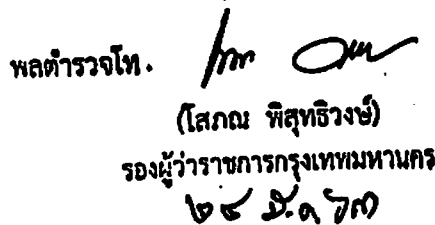 พลตำรวจโท.
(โสภณ พิสุทธิวงษ์)
รองผู้ว่าราชการกรุงเทพมหานคร
มี.ค. ๖๓